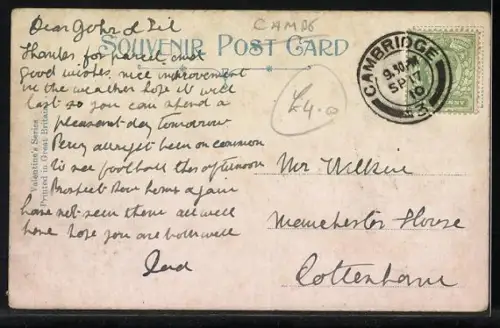 Dear John & Sil
CAMBS
SOUVENIR POST CARD
Thanks for parcel and
good wishes nice improvement
in the weather hope it will
last so you can spend a
pleasant day tomorrow
Percy been on common
to see football this afternoon
home again
have not seen them all well
home hope you are both well
Dad
£4.0
CAMBRIDGE
9.30 PM
SP 17
10
Valentine's Series
Printed in Great Britain
Mr Wilkin
Manchester House
Cottenham